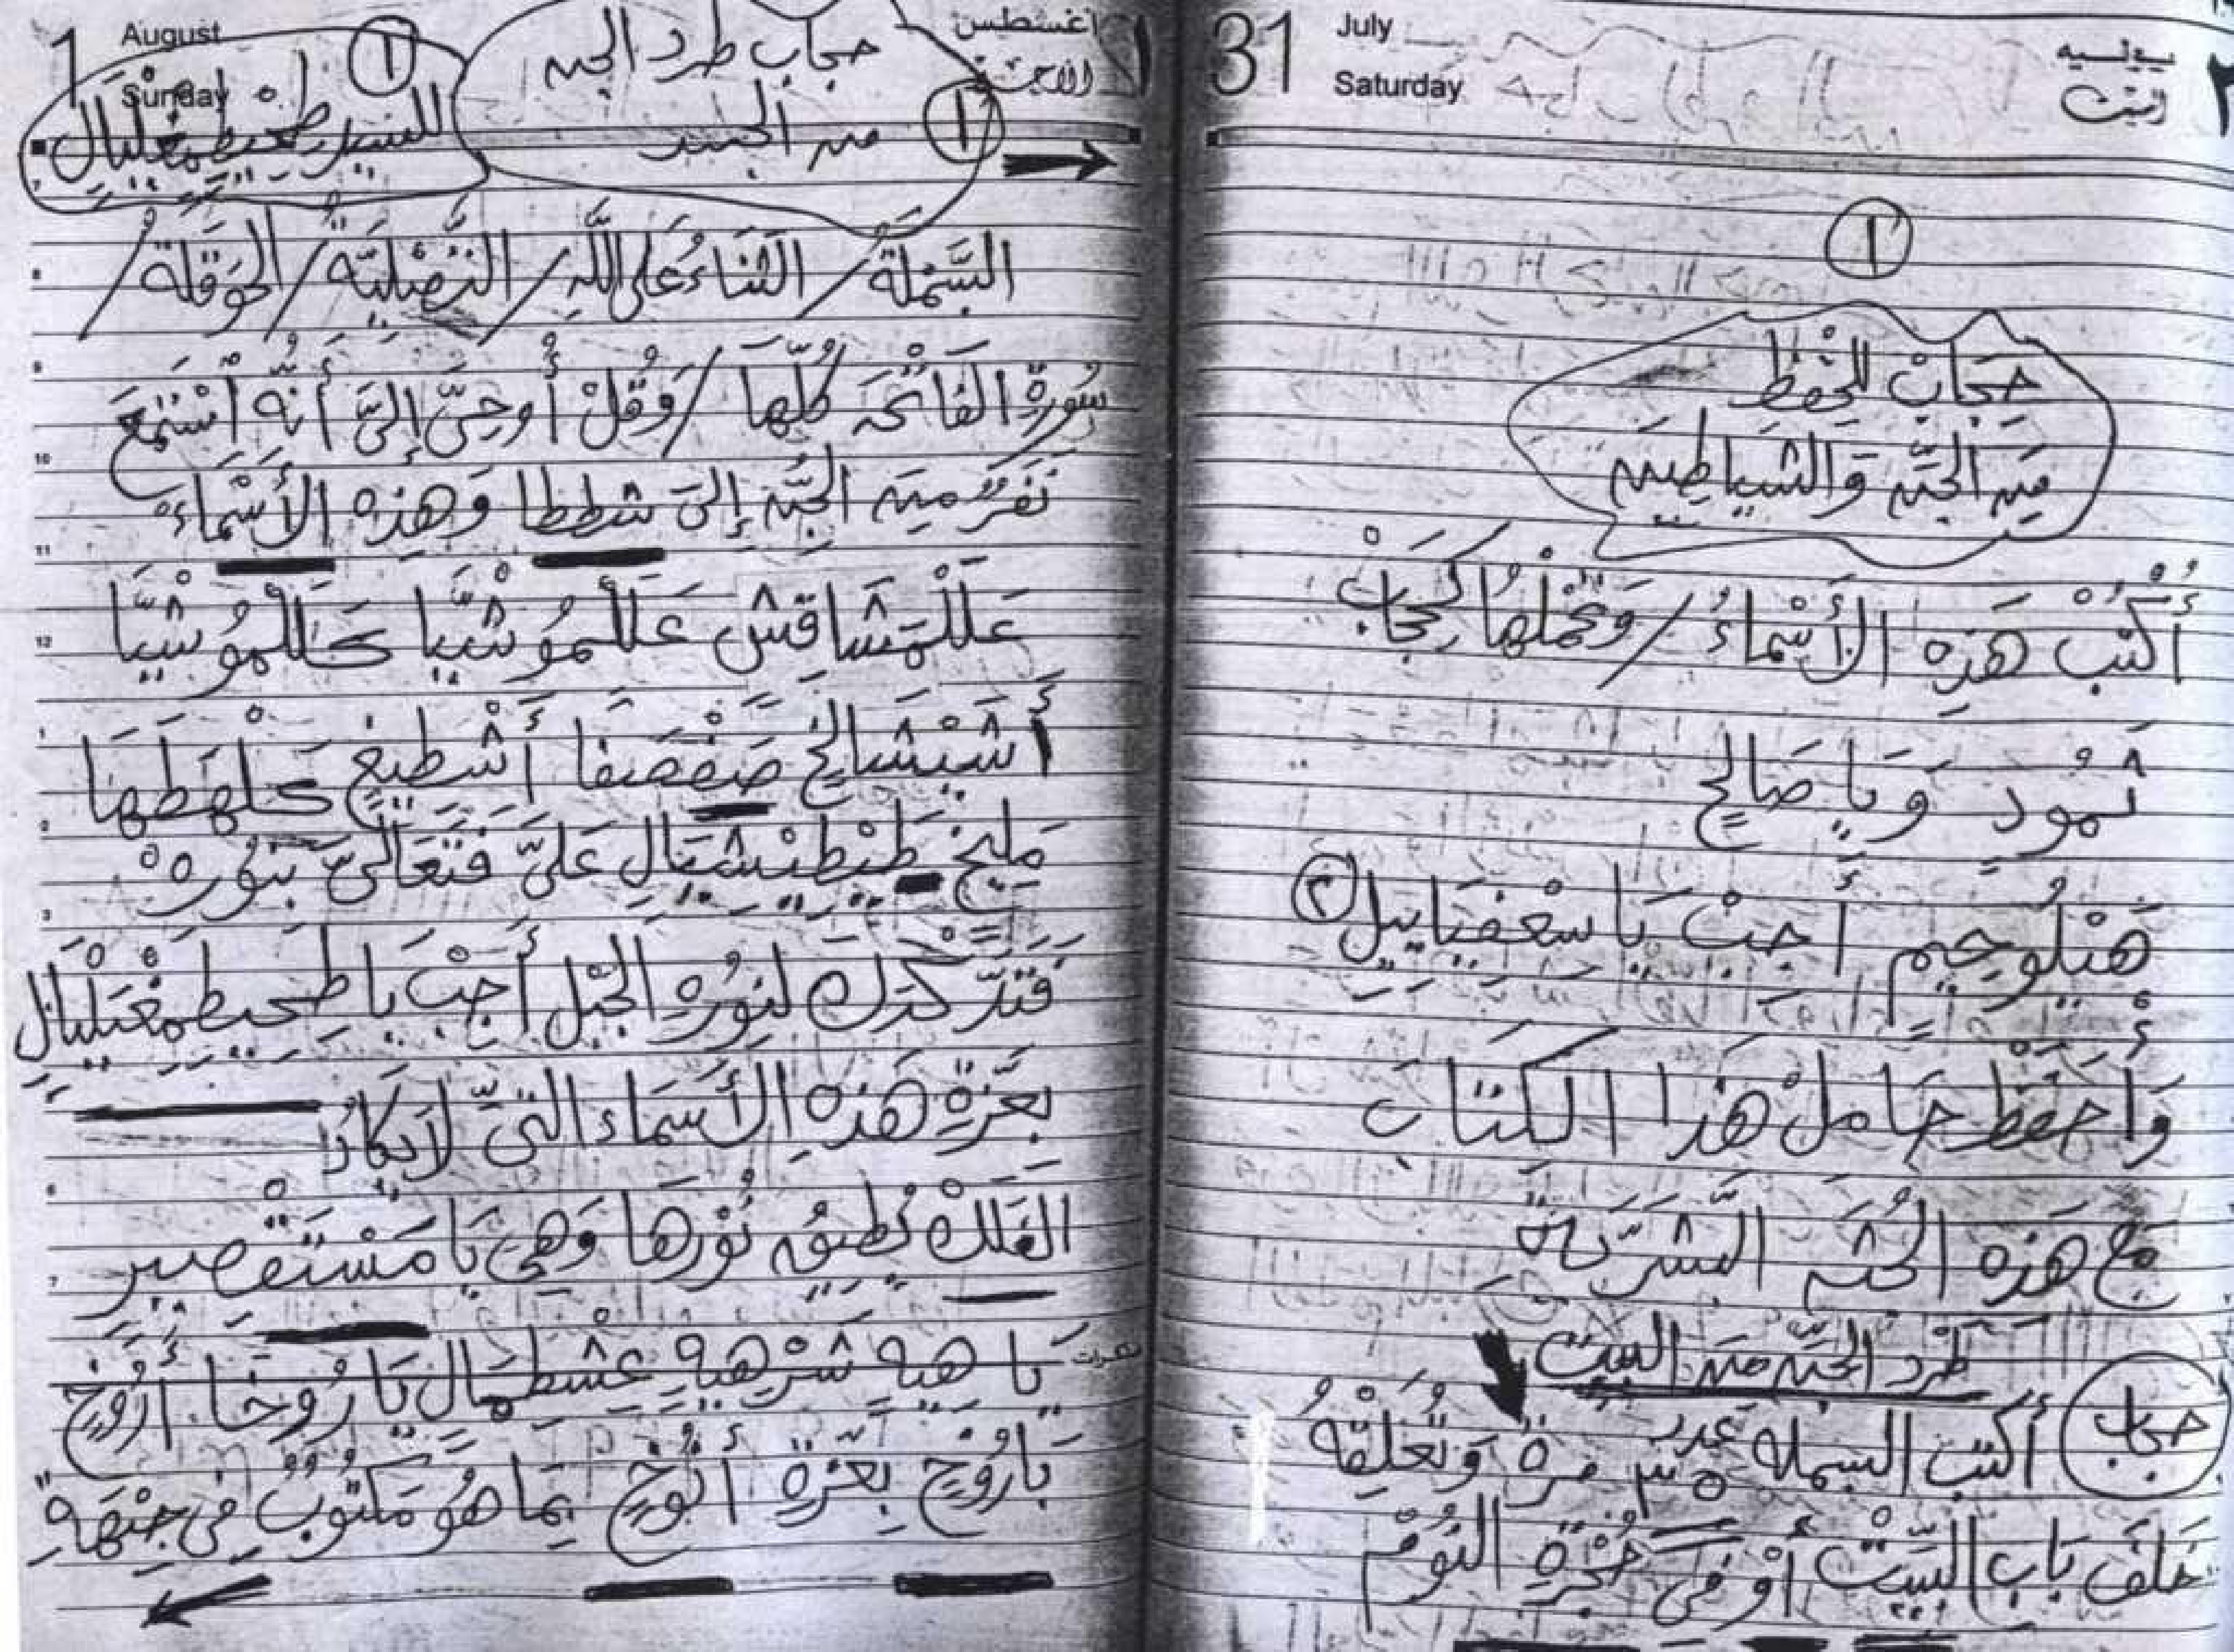 31
July
Saturday
يوليه
السبت
١
حِجَابْ للحِفْظ
مِن الجَنِ وَالشياطِين
أُكْتُبْ هَذِهِ الأَسْماءُ / وَتحْمِلْهُا كَحِجَابْ
ثمُود وَيا صَالِح
هَيْلُوجِيمٍ أَجِبْ يَا سعْفيَاييل ٢
وَأحفَظْ حَامِلْ هَذا الكِتَابَ
مع هَذِه الجُثه البَشَرّيةَ
طَرْد الجَنِ مِنَ البيت
حجاب
أُكتب البسملة عدد ٣٥ مرة وَتُعَلِقْهُ
خَلفَ بَابِ البَيّتْ أوْ فِي حُجْرَةِ النَوُمْ
1
August
Sunday
أغسطس
الأحد
١
حجاب طرد الجن
من الجسد
١
للسيد طحيطمغليال
البَسْمَلةُ / الثنَاءُ عَلى اللّهِ / التَرْضِليّه / الحَوقَلةُ /
سُورةِ الفَاتْحَه كُلّها / وَقُلْ أُوحِيّ إليَّ أَنّهُ أسْتَمَعَ
نَفَرٌ مِن الجِنِ إلىَ شططا وَهَذِه الأَسْمَاءَ
عَلَلْمَشَاقَش عَلَلْمُوْشَيّا كَلَلْمُوْشَيّا
أَشَيْشالِخٍ صَفْصَفا أَشْطِيغٍ كَلْهَطَهَا
مَلِيخٍ طَيْطِيْشيَالٍ عَليّ فتَعَالىَ بنُورِهْ
فتَدّكدَك لنوُرِهِ الجَبْل أَجِبْ يا طحيطمغليال
بعَزّةِ هَذِهِ الأَسَمَاء التيّ لاَ يكَادُ
الفَلكْ يُطِيقُ نُوْرهَا وَهِيَ يَا
يَا هِيهِ شَرْهِيهٍ عَشْطمَال يَا رُوخَا أَرُوخٍ
يَارُوخٍ بِعَزّةِ أَنُوخٍ بِمَا هُوَ مَكتُوبٌ فِى جِبْهَةِ